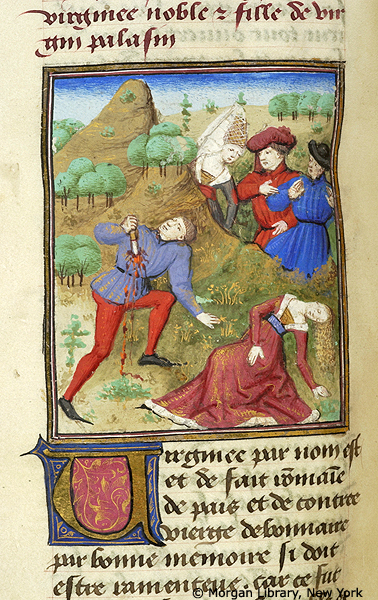 virginee noble & fille de vir
gini palasin
Virginee par nom est
et de fait rōmaīe
de pais et de contree
vierge debonnaire
par bonne memoire si doit
estre ramenteue. car ce fut
© Morgan Library, New York